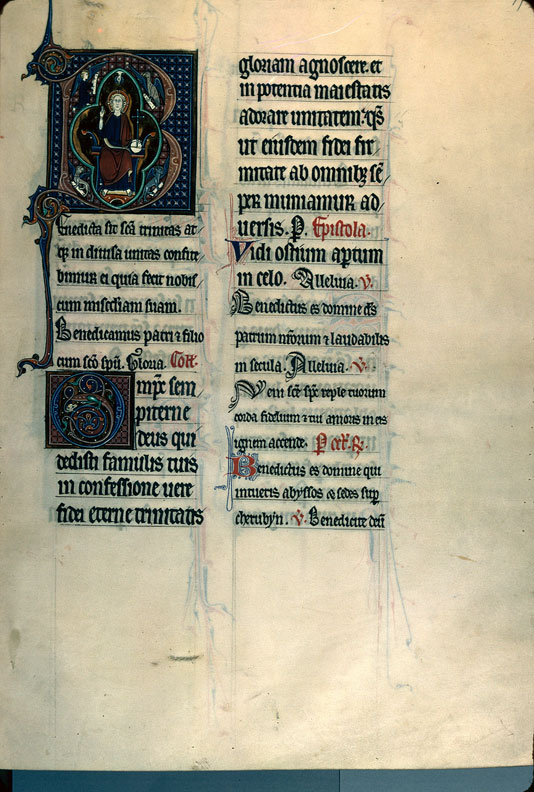 Benedicta sit scā trinitas at/
qꝫ in divisa unitas confite
bimur ei quia fecit nobis/
cum miscdiam suam.
Benedicamus patri ⁊ filio
cum scō spū. Gloria. Coll'.
Omps sem
piterne
deus qui
dedisti famulis tuis
in confessione vere
fidei eterne trinitatis
gloriam agnoscere. et
in potentia maiestatis
adorare unitatem. qs
ut eiusdem fidei fir
mitate ab omnibꝫ sē
per muniamur ad/
versis. P. Epistola.
Vidi ostium aptum
in celo. Alleluia. v.
Benedictus es domine ds
patrum nrorum ⁊ laudabilis
in secula. Alleluia. v.
Veni scē spc reple tuorum
corda fidelium ⁊ tui amoris in eis
ignem accende. P cel'. R.
Benedictus es domine qui
intueris abyssos & sedes sup
cherubyn. v. Benedicite deū